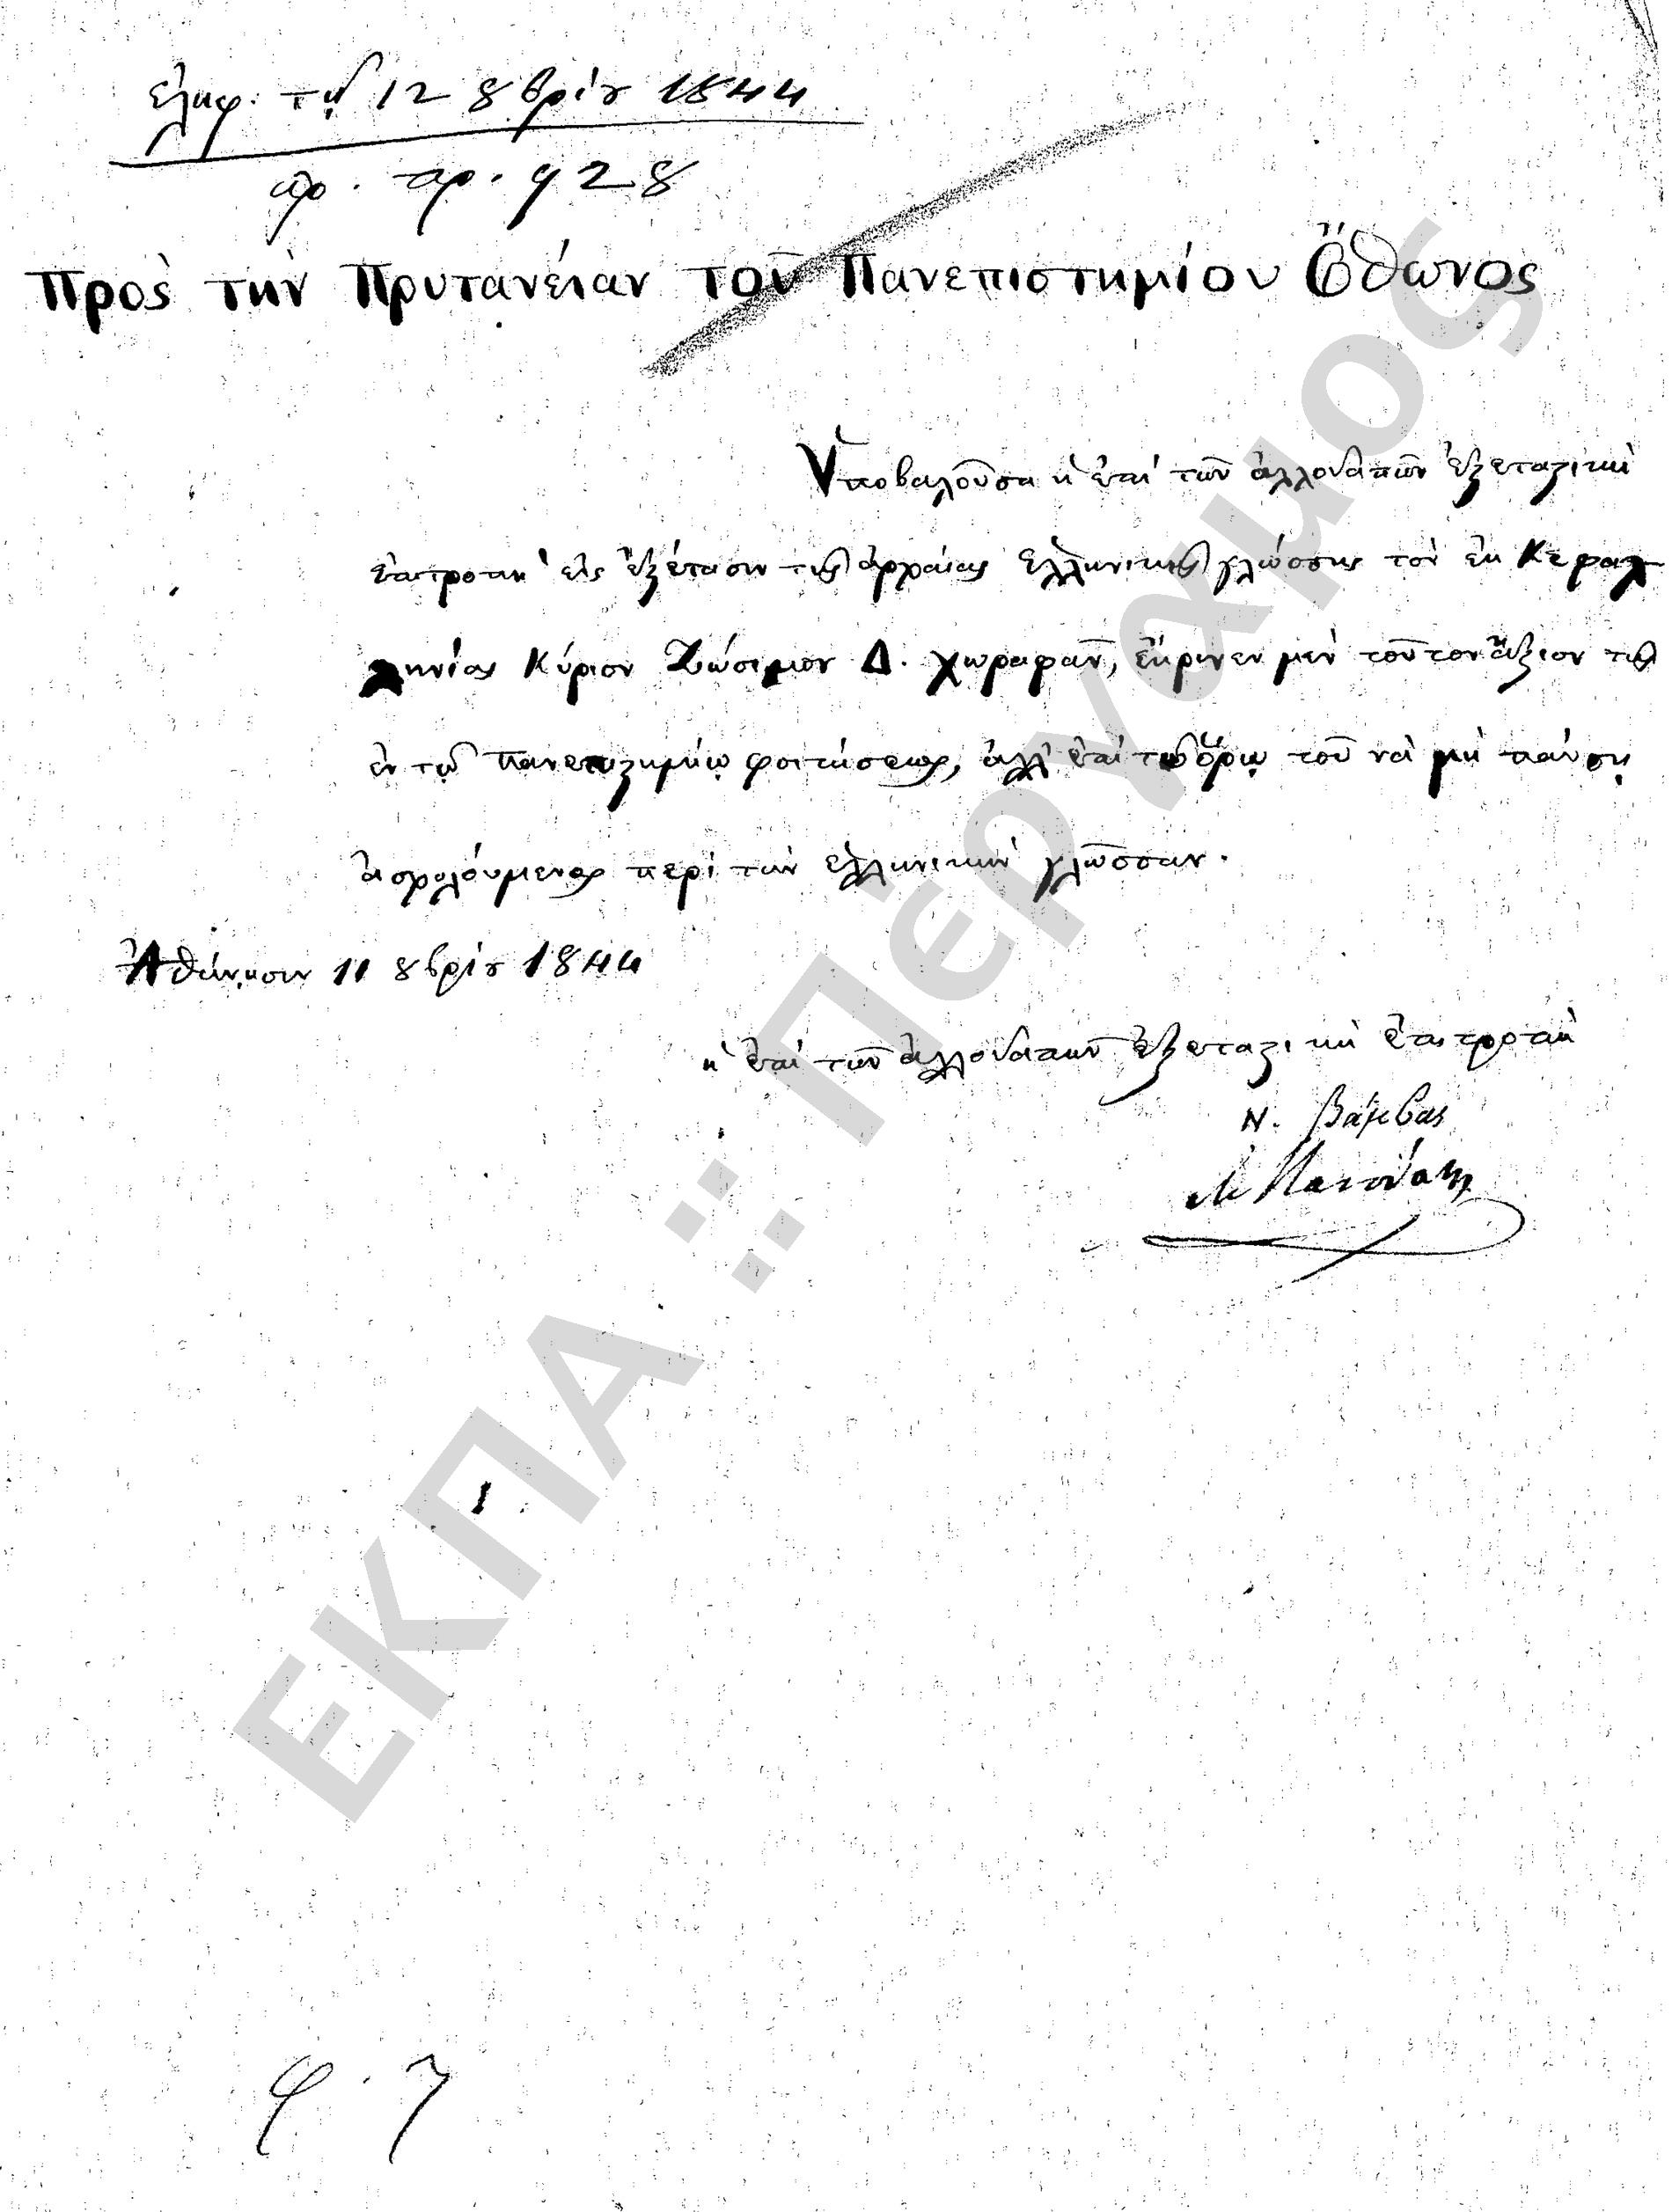 ἐλήφ. τῇ 12 8βρίου 1844
ἀρ. πρ. 928
Πρὸς τὴν Πρυτανείαν τοῦ Πανεπιστημίου Ὄθωνος
Ὑποβαλοῦσα ἡ ἐπὶ τῶν ἀλλοδαπῶν ἐξεταστικὴ
ἐπιτροπὴ εἰς ἐξέτασιν τῆς ἀρχαίας Ἑλληνικῆς γλώσσης τὸν ἐκ Κεφαλ
ληνίας Κύριον Ζώσιμον Δ. Χωραφᾶν, ἔκρινεν μὲν τοῦτον ἄξιον τῆς
ἐν τῷ Πανεπιστημίῳ φοιτήσεως, ἀλλ' ἐπὶ τῷ ὅρῳ τοῦ νὰ μὴ παύσῃ
ἀσχολούμενος περὶ τὴν ἑλληνικὴν γλῶσσαν.
Ἀθήνησιν 11 8βρίου 1844
ἡ ἐπὶ τῶν ἀλλοδαπῶν ἐξεταστικὴ ἐπιτροπὴ
Ν. Βάμβας
φ. 7
ΕΚΠΑ :: Πέργαμος